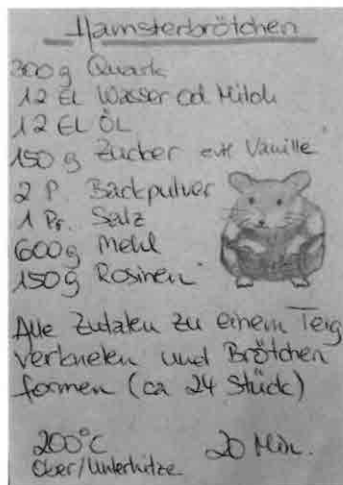 Hamsterbrötchen
300g Quark
12 EL Wasser od Milch
12 EL ÖL
150g Zucher evtl Vanille
2 P. Backpulver
1 Pr. Salz
600g Mehl
150g Rosinen
Alle Zutaten zu einem Teig
verkneten und Brötchen
formen (ca 24 Stück)
200°C 20 Min.
Ober/Unterhitze